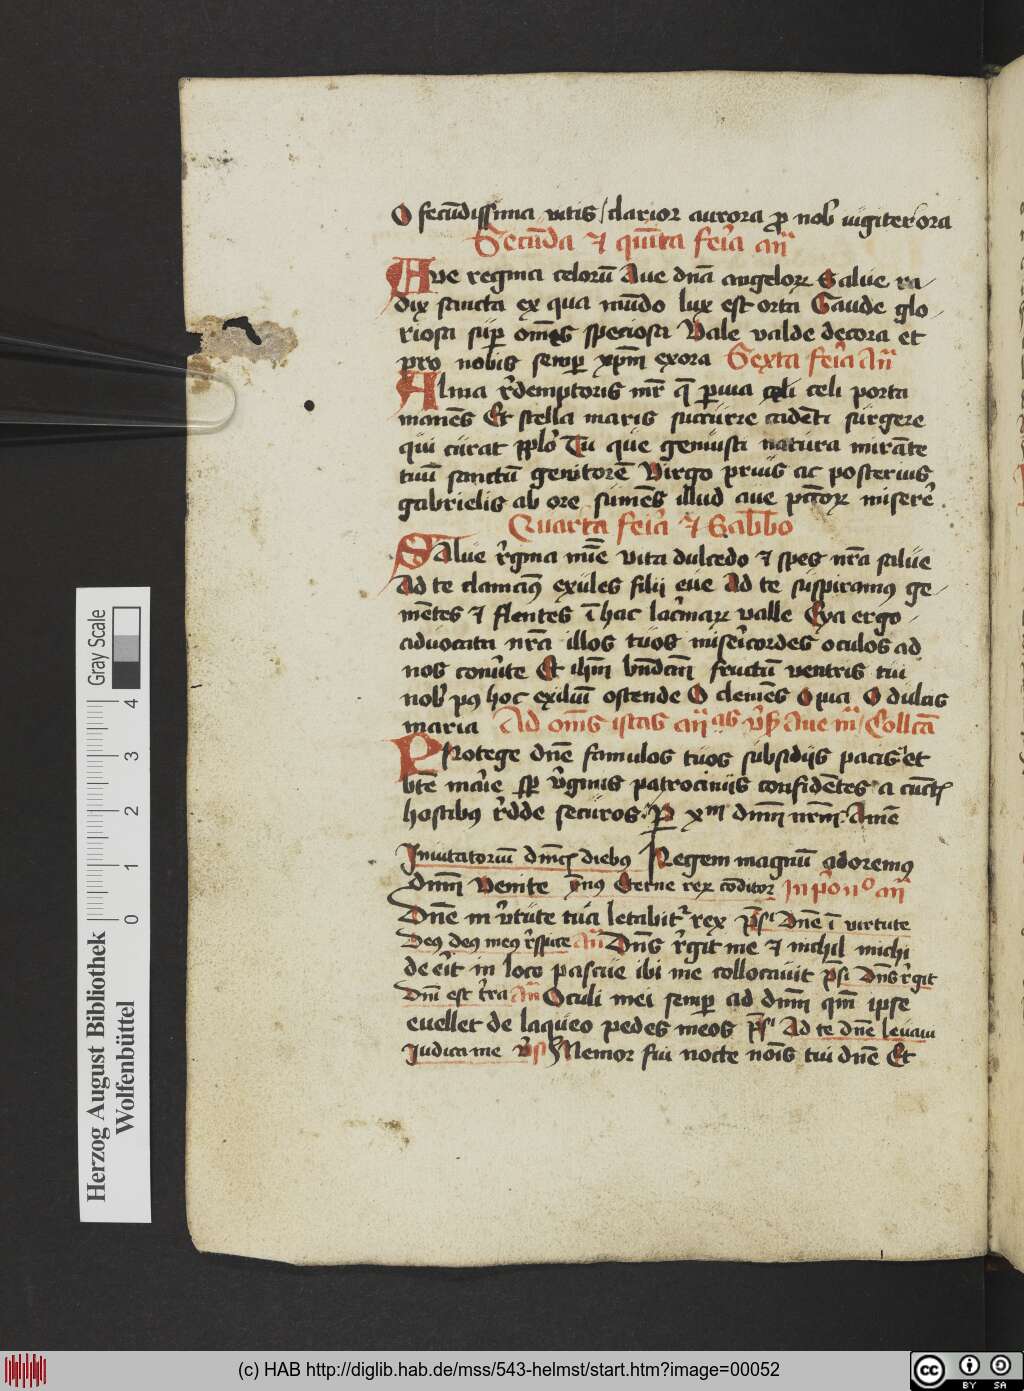 O fecūdissima vitis / clarior aurora ꝓ nob̓ iugiter ora
Secūda ⁊ qūita feīa añ
Ave regina celorū Aue dn̄a angeloꝝ Salue ra-
dix sancta ex qua mūdo lux est orta Gaude glo-
riosa suꝑ om̄es speciosa Vale valde decora et
pro nobis semꝑ xp̄m exora Sexta feīa Añ
Alma r̄demptoris mr̄ q̄ ꝑuia celi celi porta
manēs Et stella maris succurre cadēti surgere
qui curat pplo Tu que genuisti natura mirāte
tuū sanctū genitorē Virgo prius ac posterius
gabrielis ab ore sumēs illud aue pctōꝝ miserē
Quarta feīa ⁊ Sabb̄o
Salue r̄gina mīe vita dulcedo ⁊ spes nr̄a salue
Ad te clamaꝰ exules filii eue Ad te suspiramꝰ ge-
mētes ⁊ flentes ī hac lac̄maꝝ valle Eya ergo
aduocata nr̄a illos tuos miser̄icordes oculos ad
nos conu̓te Et ihm̄ bn̄dcm̄ fructū ventris tui
nob̓ pꝰ hoc exiliū ostende O clemēs O pia O dulcis
maria Ad om̄s istas añas v̓s Aue m̄ / Collcā
PRotege dn̄e famulos tuos subsidijs pacis et
bt̄e mar̄ie sꝑ v̓ginis patrociniis confidētes a cūct̄
hostibꝰ r̄dde securos. P xm̄ dnm̄ nrm̄ Amē
Inuitatoriū dn̄icꝭ diebꝰ Regem magnū adoremꝰ
dnm̄ Venite ym̄nꝰ Eterne rex cōditor In p̓o nº añ
Dn̄e in v̓tute tua letabit᷑ rex p̄s Dn̄e ī virtute
Deꝰ deꝰ meꝰ r̄spice Añ Dn̄s r̄git me ⁊ nichil michi
deer̄it in loco pascue ibi me collocauit p̄s Dn̄s r̄git
Dnī est t̄ra Añ Oculi mei semꝑ ad dnm̄ qm̄ ipse
euellet de laqueo pedes meos p̄s Ad te dn̄e leuaui
Iudica me v̓s Memor fui nocte nōis tui dn̄e Et
Herzog August Bibliothek
Wolfenbüttel
0 1 2 3 4
Gray Scale
(c) HAB http://diglib.hab.de/mss/543-helmst/start.htm?image=00052
cc BY SA